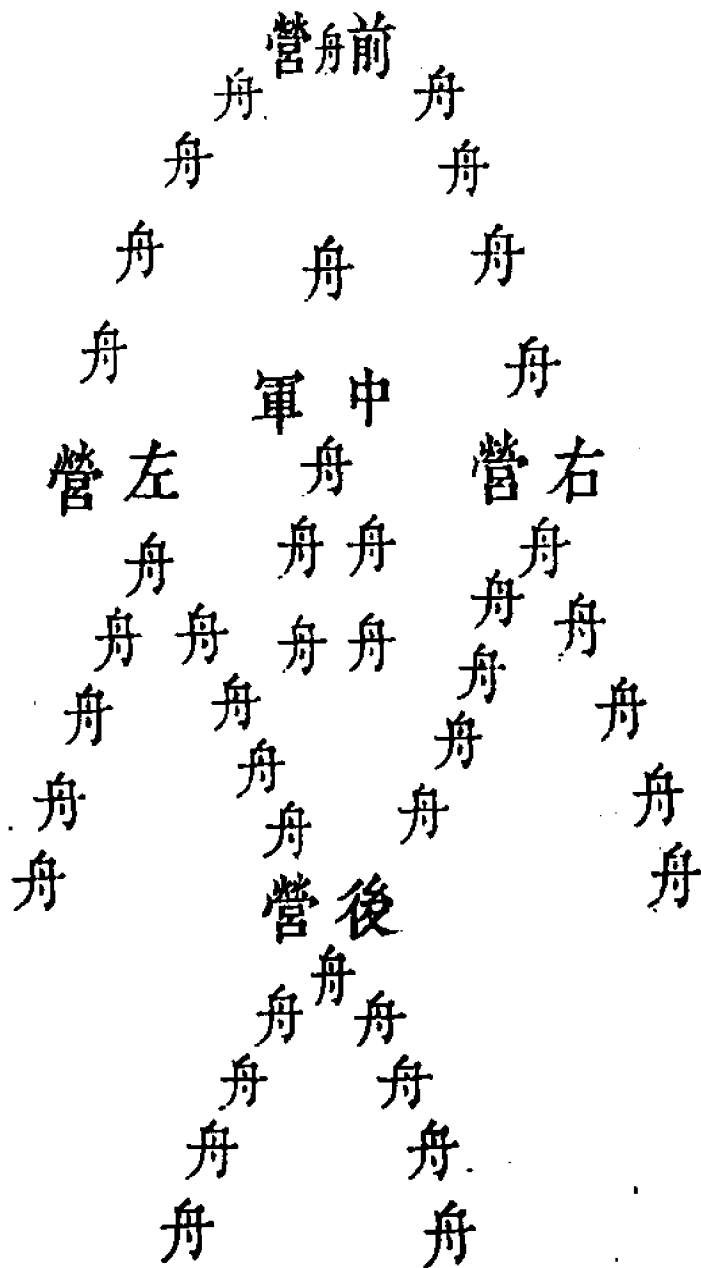 前舟營
舟 舟
舟 舟
舟 舟 舟
舟 舟
中軍
右營 舟 左營
舟 舟 舟 舟
舟 舟 舟 舟 舟 舟
舟 舟 舟 舟
舟 舟 舟 舟
舟 舟 舟 舟
後營
舟
舟 舟
舟 舟
舟 舟
舟 舟